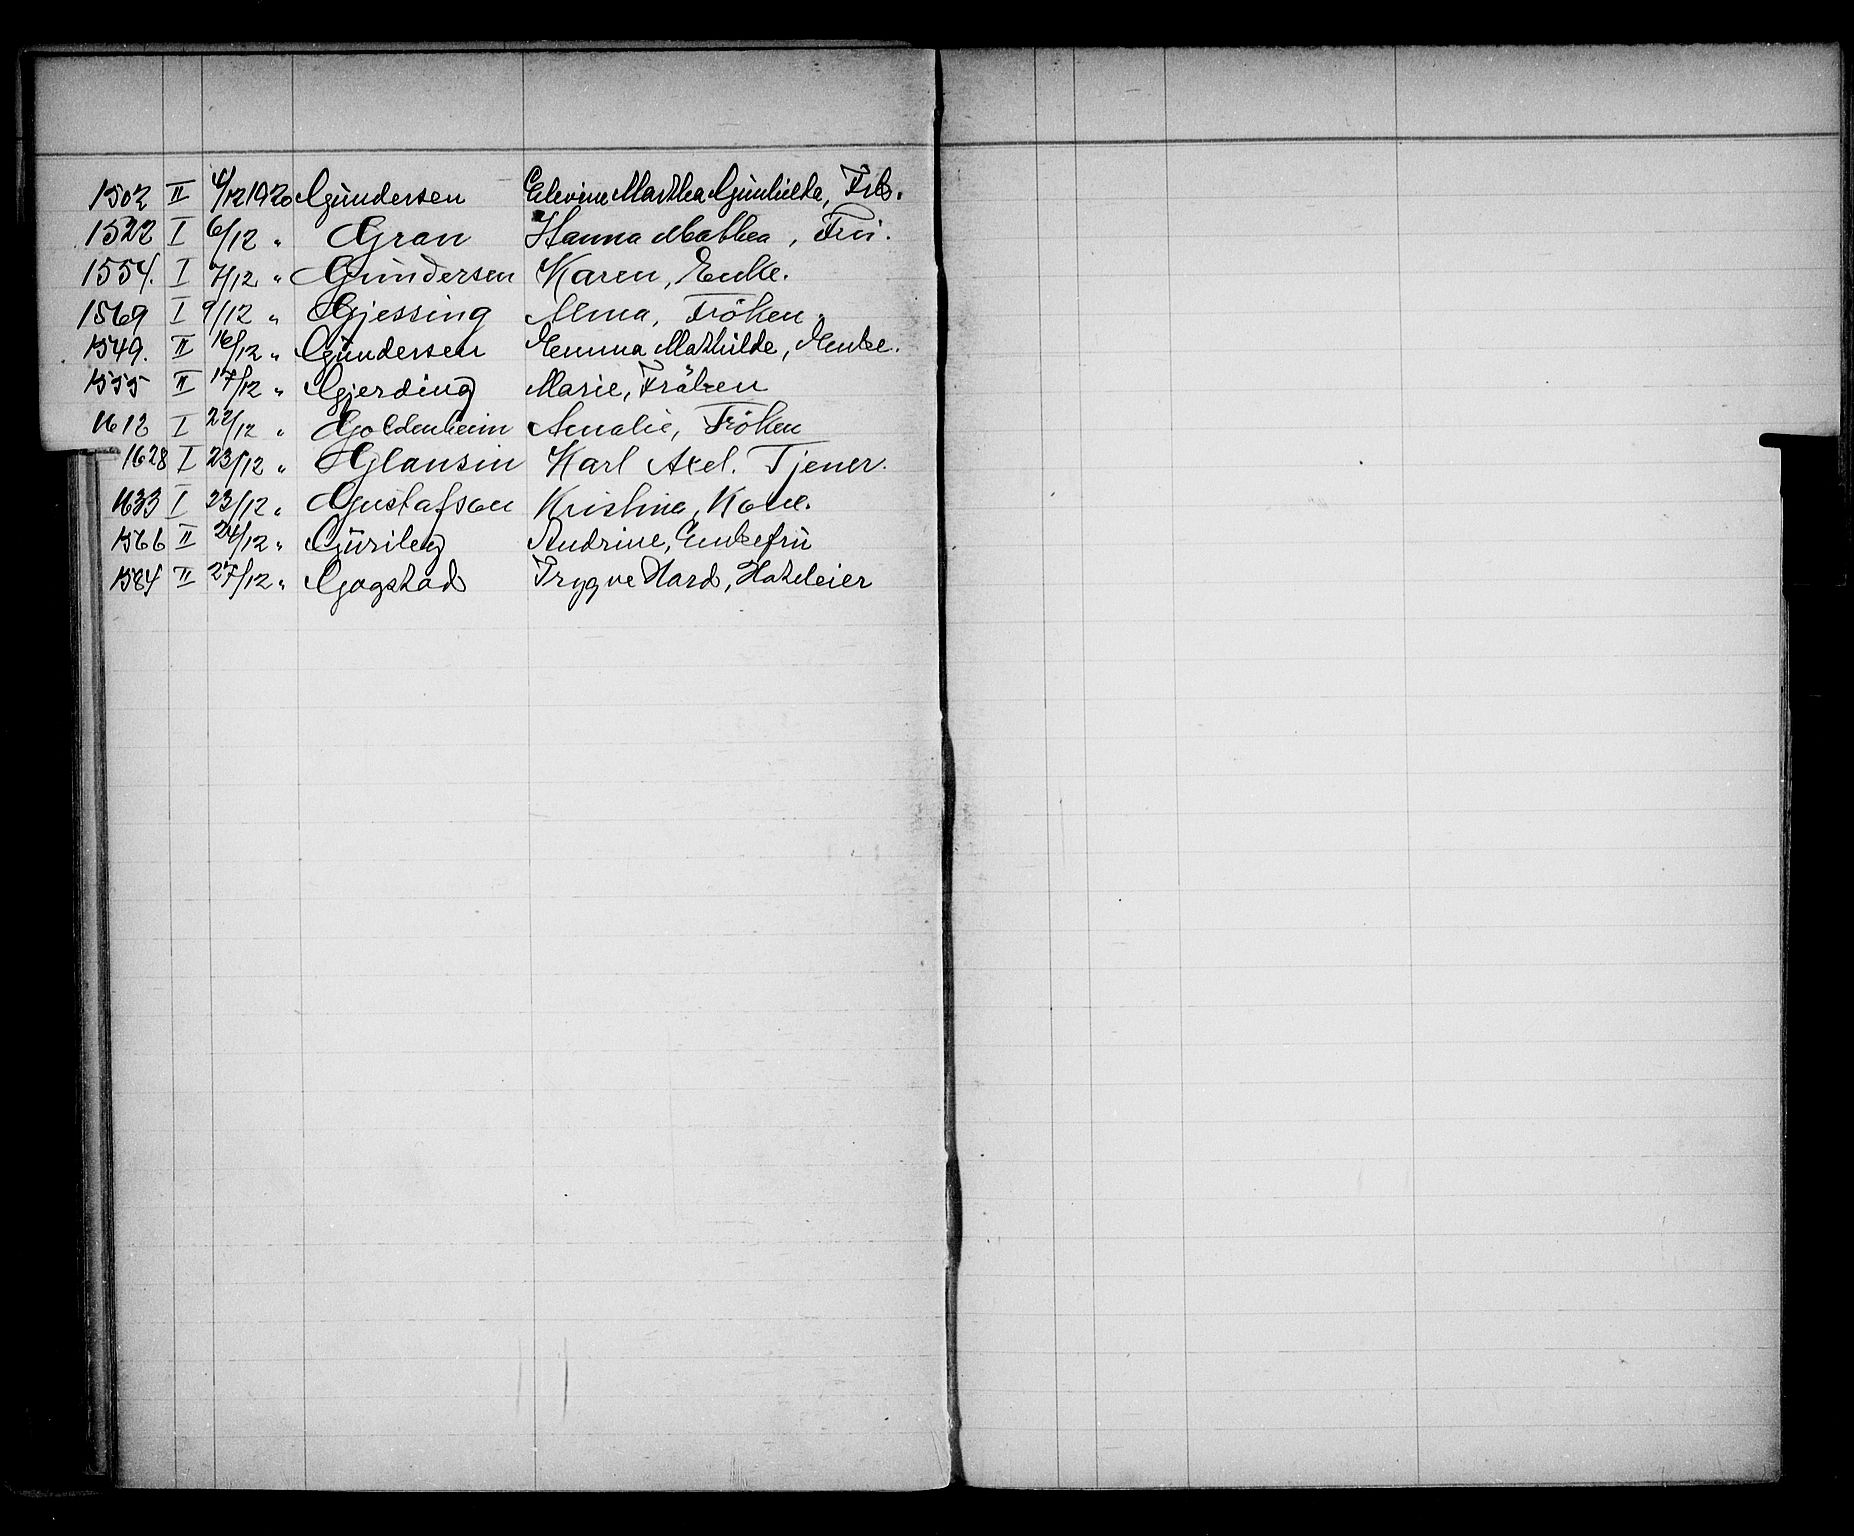 1502 II 4/12 1920 Gundersen Elevine Marthea Gunhilda, Frk.
1522 I 6/12 " Gran Hanna Mathea, Fru.
1554. I 7/12 " Gundersen Karen, Enke.
1569 I 9/12 " Gjessing Alma, Fröken.
1549. II 16/12 " Gundersen Emma Mathilde, Enke.
1555 II 17/12 " Gjerding Marie, Fröken
1612 I 22/12 " Goldenheim Amalie, Fröken
1628 I 23/12 " Glansin Karl Axel. Tjener.
1633 I 23/12 " Gustafson Kristina, Kone.
1566 II 24/12 " Andrine, Enkefru
1584 II 27/12 " Gogstad Trygve Hard, Hoteleier